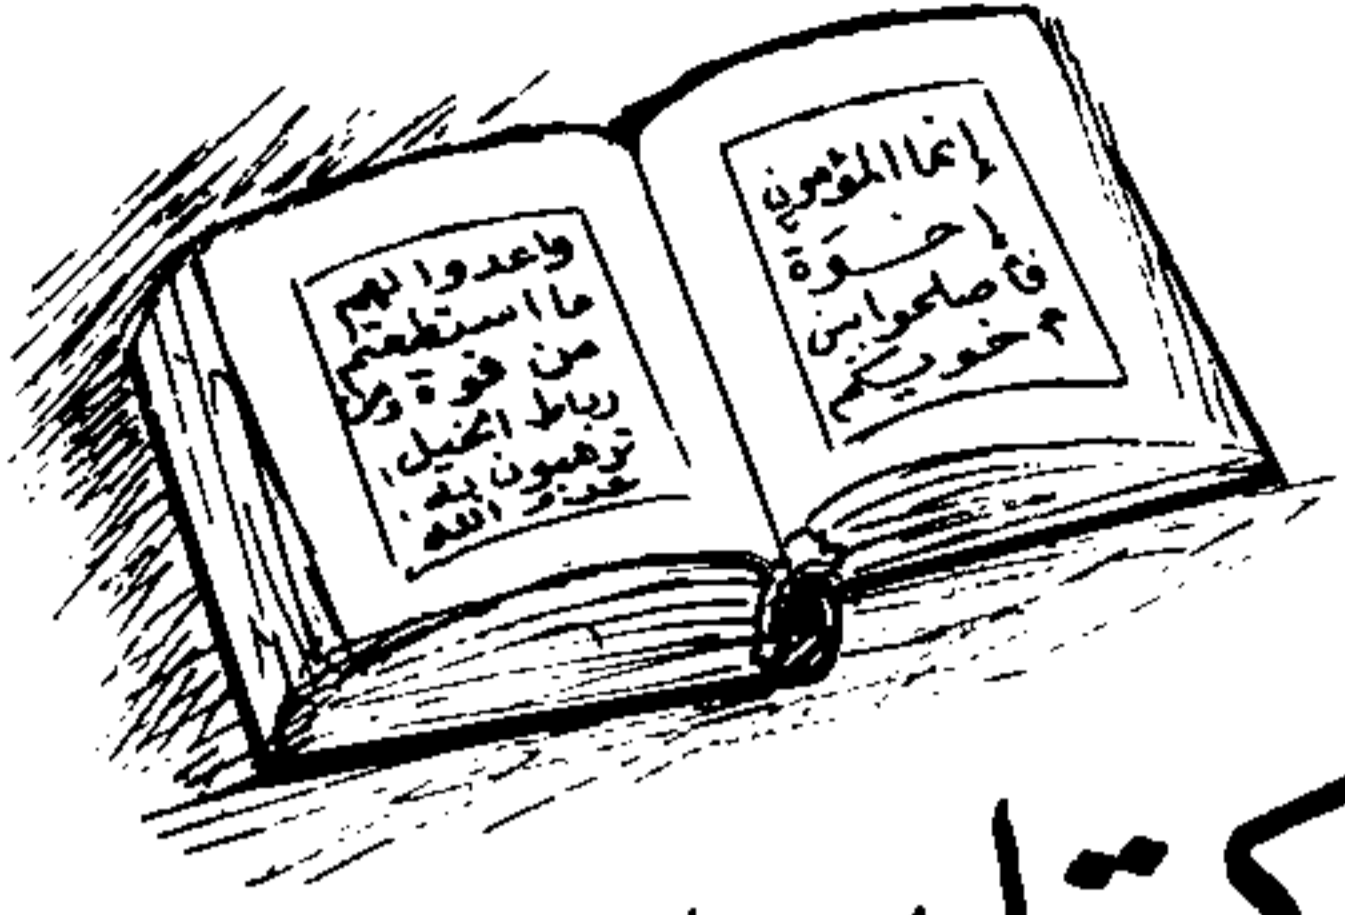 إنما المؤمنون
إخوة
فأصلحوا بين
أخويكم
واعدوا لهم
ما استطعتم
من قوة ومن
رباط الخيل
ترهبون به
عدو الله